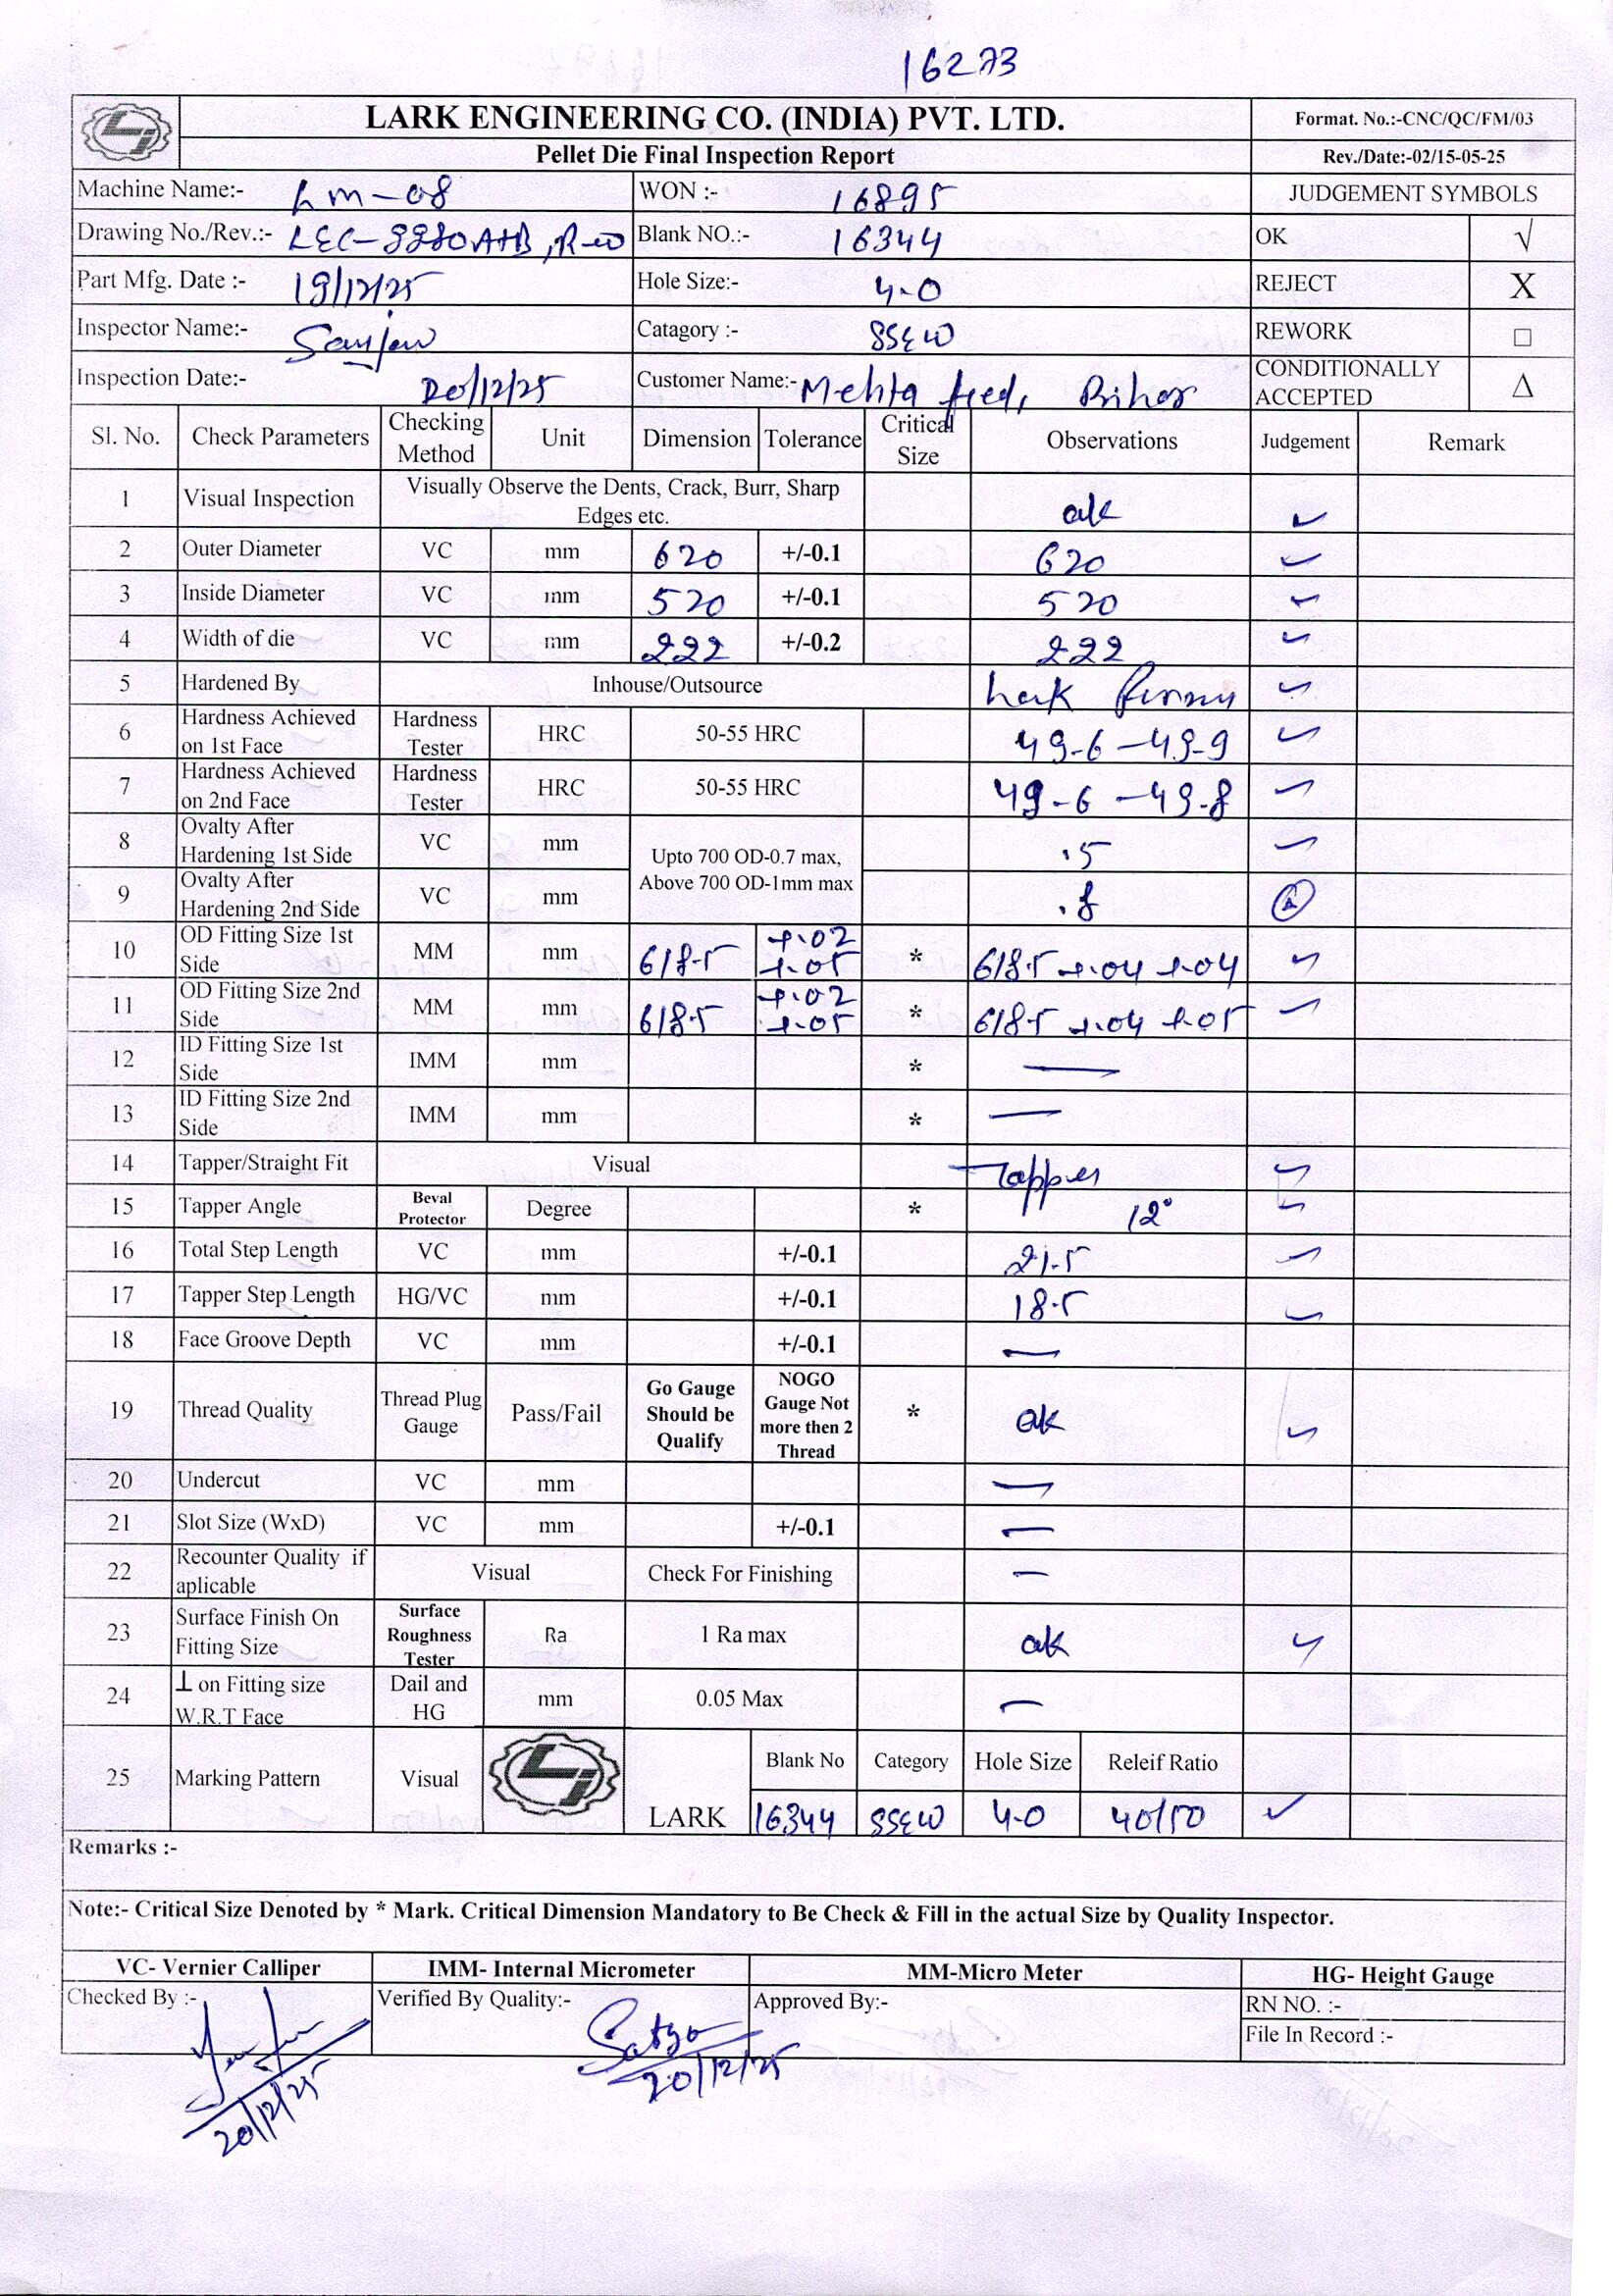 16273
LARK ENGINEERING CO. (INDIA) PVT. LTD.
Format. No.:-CNC/QC/FM/03
Pellet Die Final Inspection Report
Rev./Date:-02/15-05-25
Machine Name:- Lm-08 WON :- 16895 JUDGEMENT SYMBOLS
Drawing No./Rev.:- Blank NO.:- 16344 OK √
Part Mfg. Date :- 19/12/25 Hole Size:- 4.0 REJECT X
Inspector Name:- Catagory :- SSEW REWORK □
Inspection Date:- 20/12/25 Customer Name:- Mehta feed, Bihar CONDITIONALLY ACCEPTED Δ
Sl. No. Check Parameters Checking Method Unit Dimension Tolerance Critical Size Observations Judgement Remark
1 Visual Inspection Visually Observe the Dents, Crack, Burr, Sharp Edges etc. ok ✓
2 Outer Diameter VC mm 620 +/-0.1 620 ✓
3 Inside Diameter VC mm 520 +/-0.1 520 ✓
4 Width of die VC mm 222 +/-0.2 222 ✓
5 Hardened By Inhouse/Outsource Lark ✓
6 Hardness Achieved on 1st Face Hardness Tester HRC 50-55 HRC 49-6 – 49-9 ✓
7 Hardness Achieved on 2nd Face Hardness Tester HRC 50-55 HRC 49-6 – 49-8 ✓
8 Ovalty After Hardening 1st Side VC mm Upto 700 OD-0.7 max, Above 700 OD-1mm max .5 ✓
9 Ovalty After Hardening 2nd Side VC mm .8
10 OD Fitting Size 1st Side MM mm 618.5 +.02 +.05 * 618.5 +.04 +.04 ✓
11 OD Fitting Size 2nd Side MM mm 618.5 +.02 +.05 * 618.5 +.04 +.05 ✓
12 ID Fitting Size 1st Side IMM mm * —
13 ID Fitting Size 2nd Side IMM mm * —
14 Tapper/Straight Fit Visual Tapper ✓
15 Tapper Angle Beval Protector Degree * 12° ✓
16 Total Step Length VC mm +/-0.1 21.5 ✓
17 Tapper Step Length HG/VC mm +/-0.1 18.5 ✓
18 Face Groove Depth VC mm +/-0.1 —
19 Thread Quality Thread Plug Gauge Pass/Fail Go Gauge Should be Qualify NOGO Gauge Not more then 2 Thread * ok ✓
20 Undercut VC mm —
21 Slot Size (WxD) VC mm +/-0.1 —
22 Recounter Quality if aplicable Visual Check For Finishing —
23 Surface Finish On Fitting Size Surface Roughness Tester Ra 1 Ra max ok ✓
24 ⊥ on Fitting size W.R.T Face Dail and HG mm 0.05 Max —
25 Marking Pattern Visual LARK Blank No Category Hole Size Releif Ratio
16344 SSEW 4.0 40/50 ✓
Remarks :-
Note:- Critical Size Denoted by * Mark. Critical Dimension Mandatory to Be Check & Fill in the actual Size by Quality Inspector.
VC- Vernier Calliper IMM- Internal Micrometer MM-Micro Meter HG- Height Gauge
Checked By :- Verified By Quality:- Satya Approved By:- RN NO. :-
File In Record :-
20/12/25 20/12/25